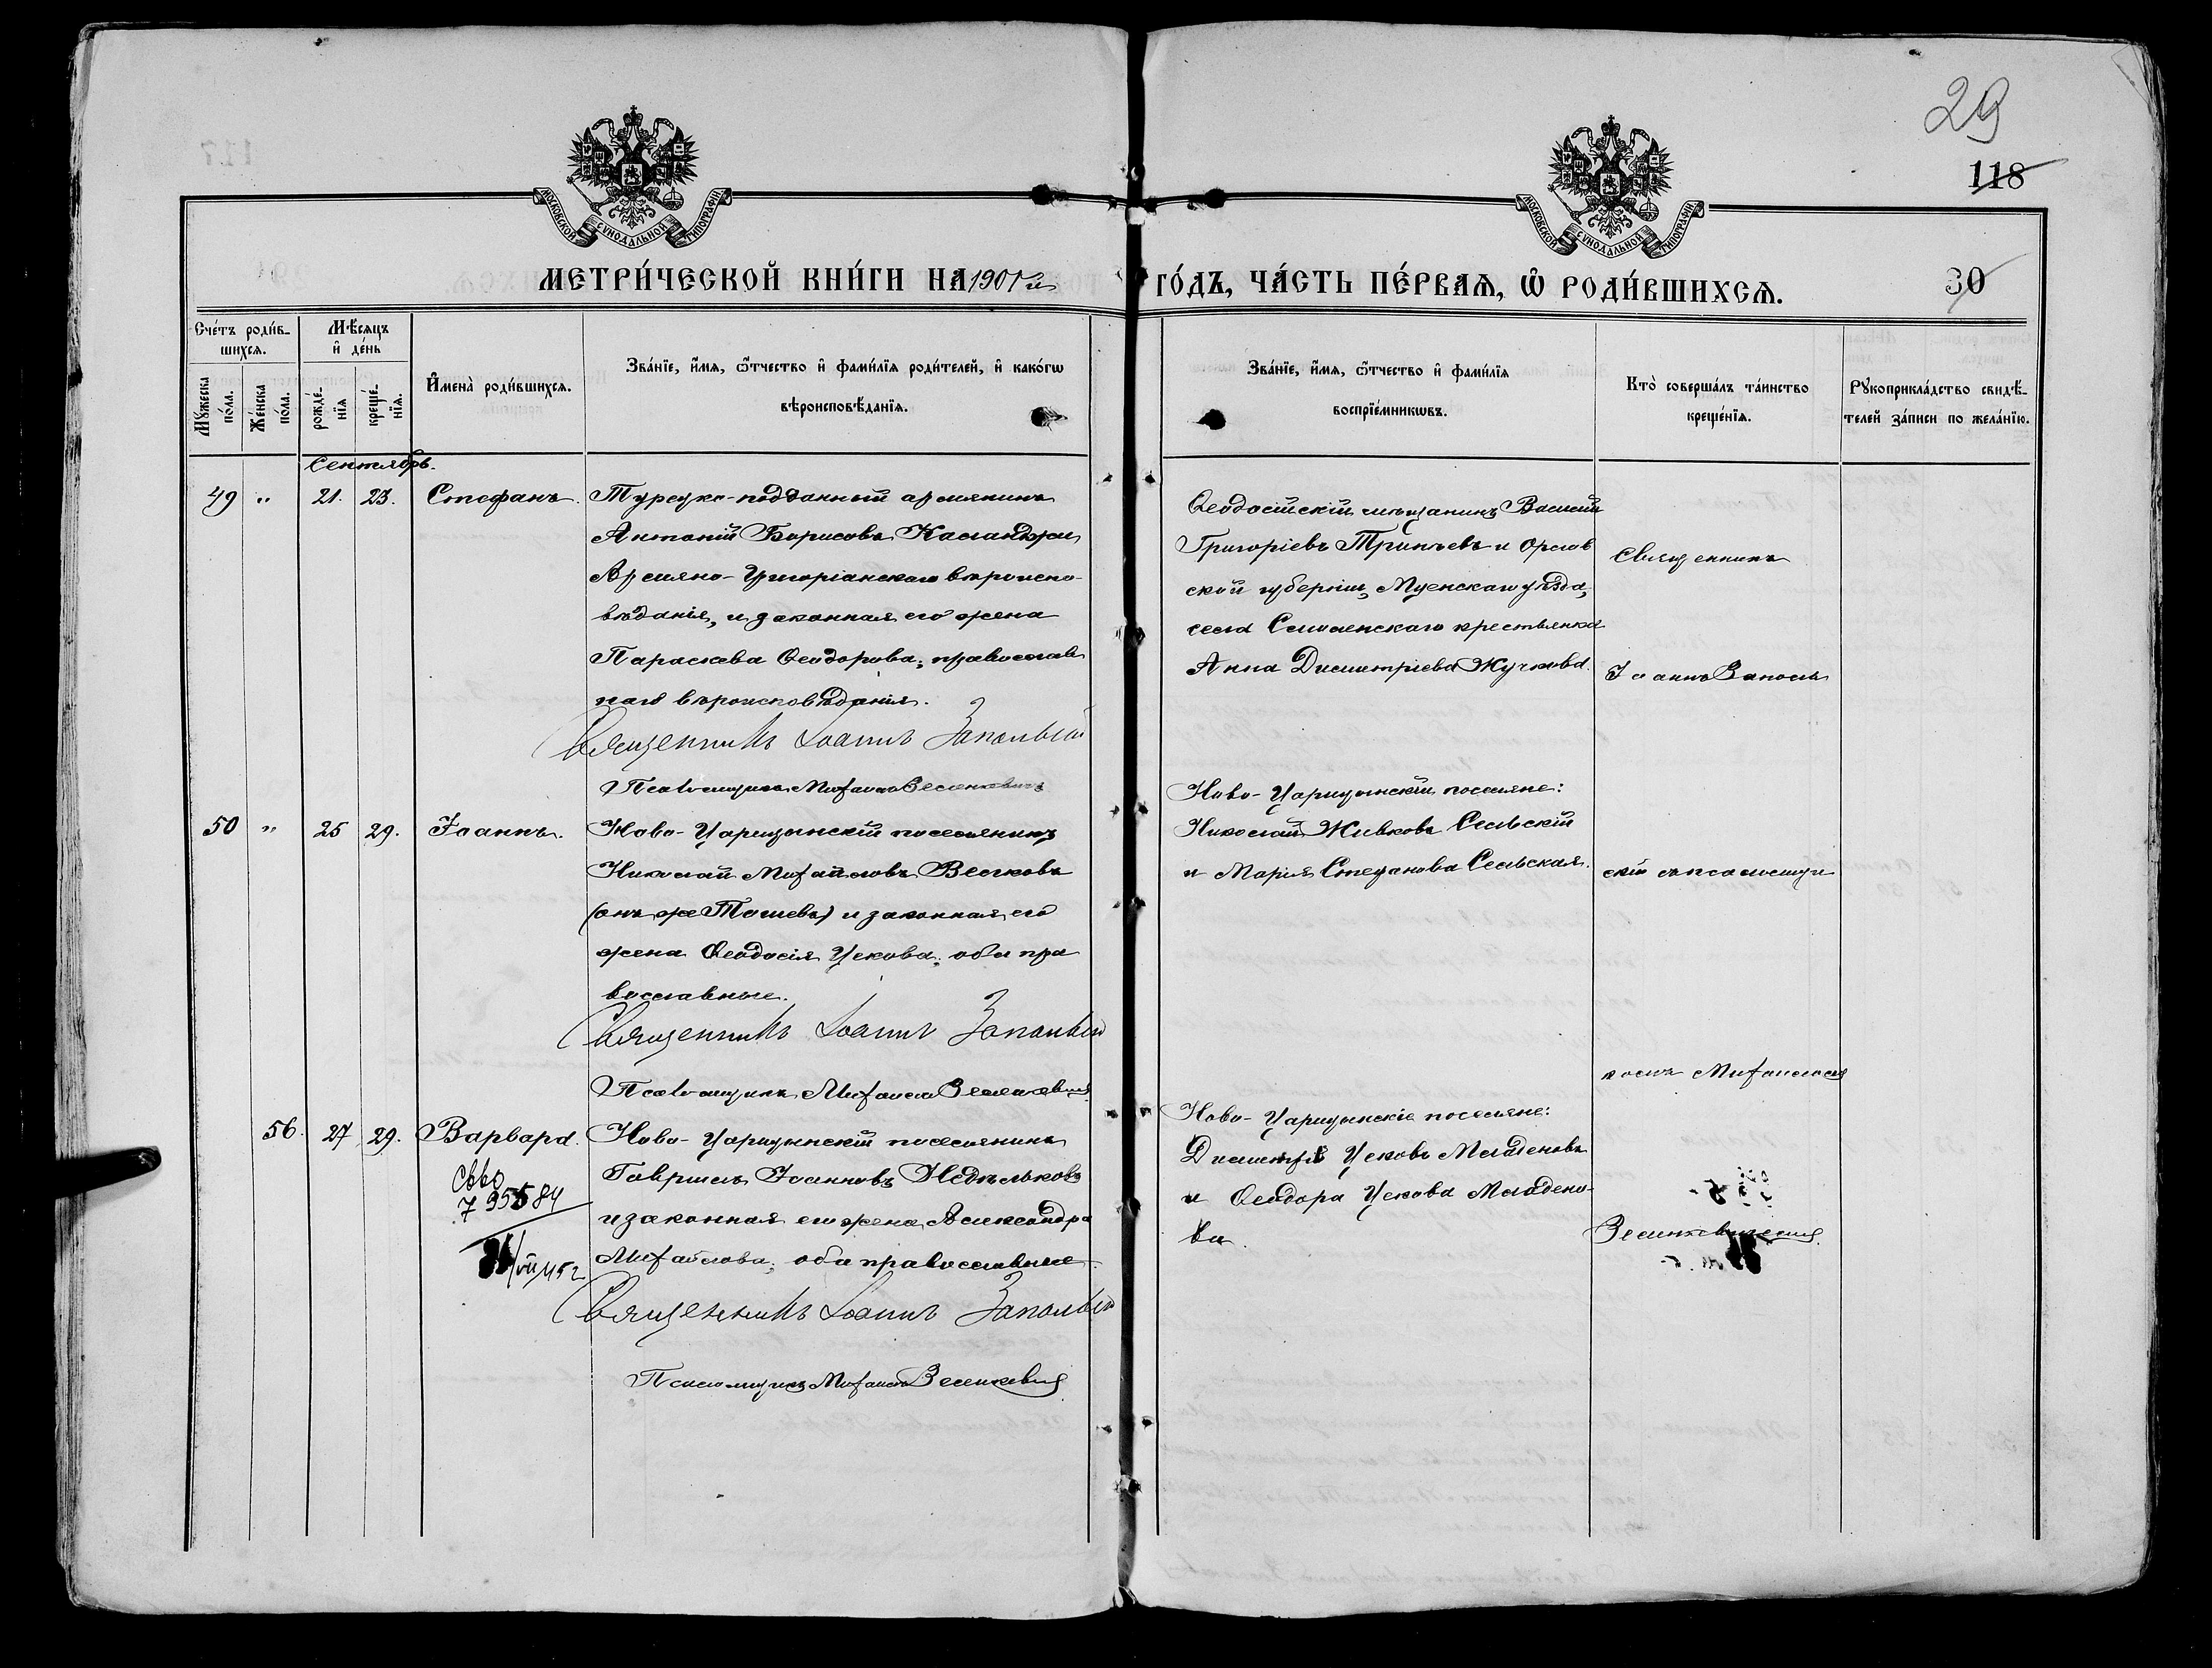 29
118
30
МОСКОВСКОЙ СѴНОДАЛЬНОЙ ТИПОГРАФІИ
МОСКОВСКОЙ СѴНОДАЛЬНОЙ ТИПОГРАФІИ
МЕТРИ́ЧЕСКОЙ КНИ́ГИ НА 1901й
ГО́ДЪ, ЧА́СТЬ ПЕ́РВАѦ, Ѽ РОДИ́ВШИХСѦ.
Сче́тъ роди́в-
шихсѧ.
Мѣ́сѧцъ
и҆ де́нь
Мꙋ́жеска
по́ла.
Же́нска
по́ла.
рожде́-
нїѧ
креще́-
нїѧ.
И҆мена̀ роди́вшихсѧ.
Зва́нїе, и҆́мѧ, ѻ҆́тчество и҆ фами́лїѧ роди́телей, и҆ како́гѡ
вѣроисповѣ́данїѧ.
Зва́нїе, и҆́мѧ, ѻ҆́тчество и҆ фами́лїѧ
воспрїе́мникѡвъ.
Кто̀ соверша́лъ та́инство
креще́нїѧ.
Рꙋкоприкла́дство свидѣ́-
телей за́писи по жела́нїю.
Сентябрь.
49 " 21. 23. Стефанъ.
Турецко-подданный армянинъ
Антоній Борисовъ Касланджи
Армяно-Григоріанскаго вѣроиспо-
вѣданія, и законная его жена
Параскева Ѳеодорова, православ
наго вѣроисповѣданія.
Священникъ Іоаннъ Запольскій
Псаломщикъ Михаилъ Зелинкевичъ
Ѳеодосійскій мѣщанинъ Василій
Григоріевъ Трипчевъ и Орлов
ской губерніи, Мценскаго уѣзда,
села Смоленскаго крестьянка
Анна Димитріева Жучкова.
Священникъ
Іоаннъ Заполь
50 " 25 29. Іоаннъ.
Ново-Царицынскій поселянинъ
Николай Михайловъ Велковъ
(онъ же Тошевъ) и законная его
жена Ѳеодосія Цекова, оба пра
вославные.
Священникъ Іоаннъ Запольскій
Псаломщикъ Михаилъ Зелинкевичъ
Ново-Царицынскіе поселяне:
Николай Живковъ Сельскій
и Марія Стефанова Сельская.
скій съ псаломщи
комъ Михаиломъ
56. 27 29. Варвара.
Ново-Царицынскій поселянинъ
Гавріилъ Іоанновъ Недѣльковъ
и законная его жена Александра
Михайлова, оба православные.
Священникъ Іоаннъ Запольскій
Псаломщикъ Михаилъ Зелинкевичъ
Ново-Царицынскіе поселяне:
Димитрій Цековъ Младеновъ
и Ѳеодора Цекова Младено-
ва.
Зелинкевичемъ.